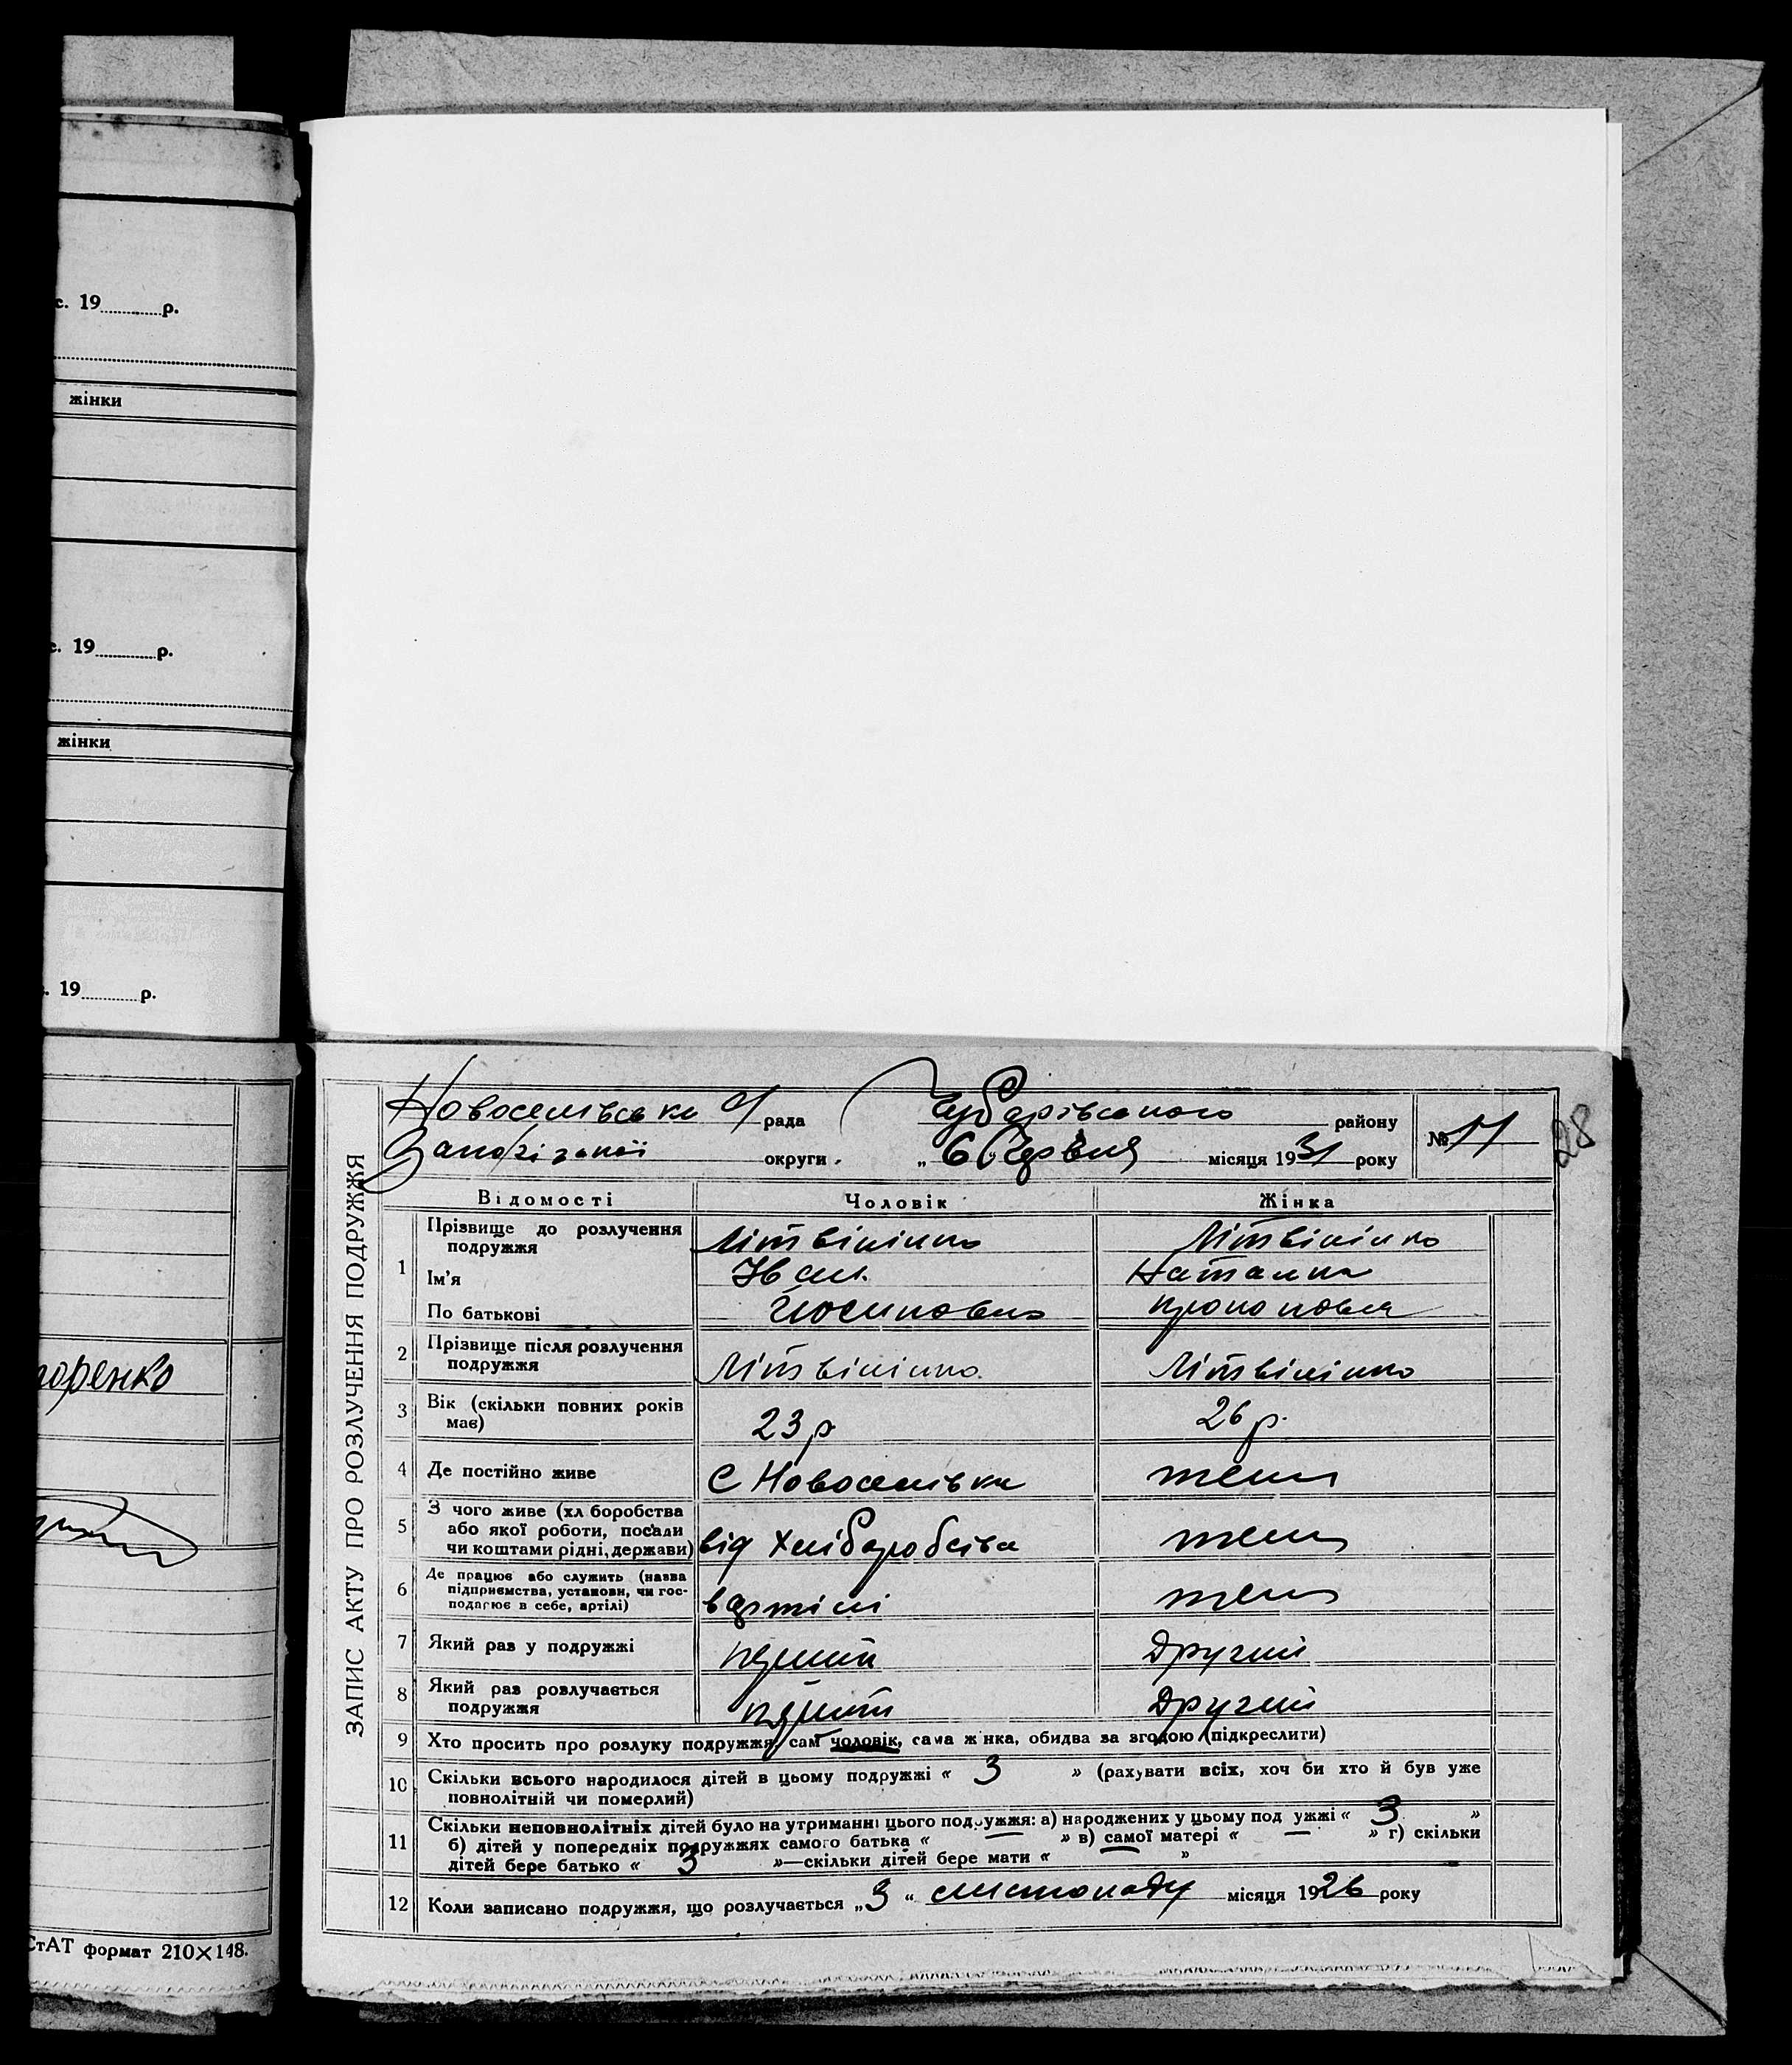 с. 19 р.
жінки
с. 19 р.
жінки
. 19 р.
оренко
СтАТ формат 210×148.
ЗАПИС АКТУ ПРО РОЗЛУЧЕННЯ ПОДРУЖЖЯ
Новоселівська с/рада Чубарівського району
№ 11
28
Запорізької округи. „6" Червня місяця 1931 року
Відомості Чоловік Жінка
1 Прізвище до розлучення подружжя Літвінінко Літвінінко
Ім'я Іван. Наталка
По батькові Йосипович Прокоповна
2 Прізвище після розлучення подружжя Літвінінко Літвінінко
3 Вік (скільки повних років має) 23 р 26 р.
4 Де постійно живе С Новоселівка теж
5 З чого живе (хліборобства
або якої роботи, посади
чи коштами рідні, держави) від Хліборобства теж
6 Де працює або служить (назва
підприємства, установи, чи гос-
подарює в себе, артілі) в артілі теж
7 Який раз у подружжі перший Другий
8 Який раз розлучається
подружжя перший Другий
9 Хто просить про розлуку подружжя, сам чоловік, сама жінка, обидва за згодою (підкреслити)
10 Скільки всього народилося дітей в цьому подружжі « 3 » (рахувати всіх, хоч би хто й був уже
повнолітній чи померлий)
11 Скільки неповнолітніх дітей було на утриманні цього подружжя: а) народжених у цьому подружжі « 3 »
б) дітей у попередніх подружжях самого батька « — » в) самої матері « — » г) скільки
дітей бере батько « 3 »—скільки дітей бере мати « — »
12 Коли записано подружжя, що розлучається „3" листопаду місяця 1926 року